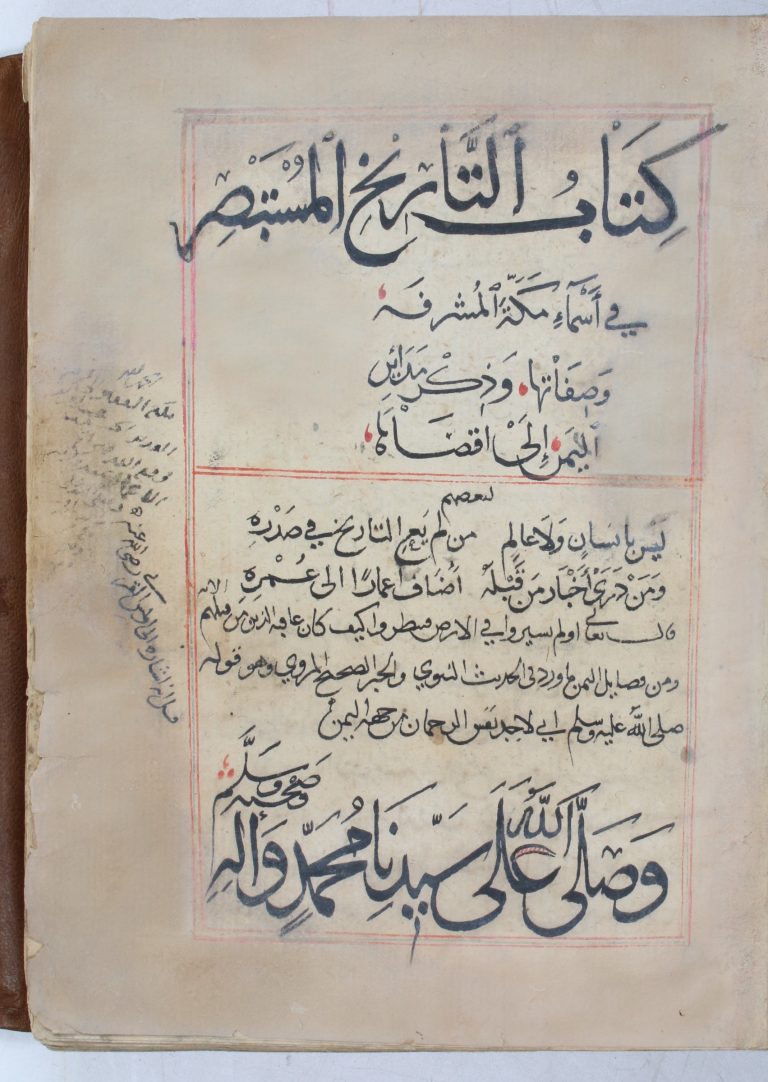 كِتَابُ التَّأرِيْخ المُسْتَبْصِر
في أَسْمَآءِ مَكَّةَ المُشرفَه
وَصِفَاتها، وَذِكْر مَدَائِنِ
اليَمَن إِلَىْ اقصَاْهَا،
لبعضهم
ليسَ بانسَانٍ وَلَا عَالمٍ من لم يَعِ التاريخ في صَدْرِهِ
وَمَنْ دَرَىْ أَخْبَار مَن قَبْلَهُ أضَاف اعمارًا الى عُمْرِهِ
قال تعالى اولم يسيروا في الارض فينظروا كيف كان عاقبه الذين من قبلهم الايه
ومن فضايل اليمن ما ورد في الحديث النبوي والخبر الصحيح المروي وهو قوله
صلى اللَّه عليه وسلم اني لاجد نفس الرحمان من جهة اليمن
وَصَلَّى اللَّهُ عَلَى سَيِّدِنَا مُحَمَّدٍ وَالِهِ
وَصَحْبِهِ وَسَلَّم